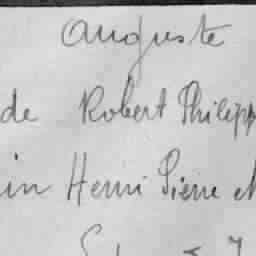 Auguste
de Robert Philipp
in Henri Pierre et